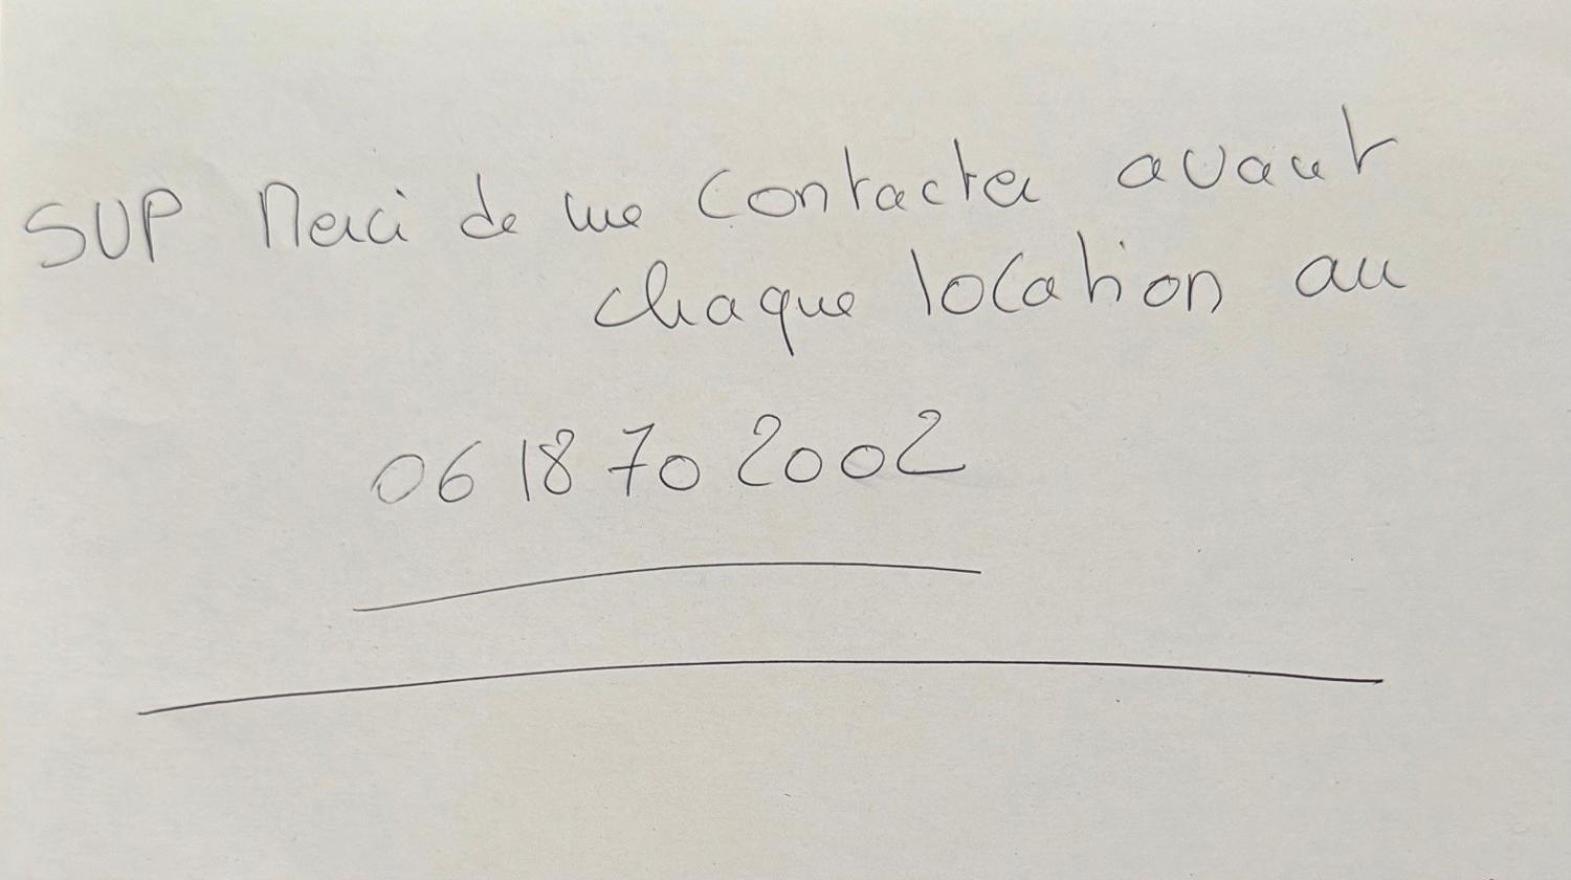 SUP Merci de me contacter avant
chaque location au
06 18 70 2002